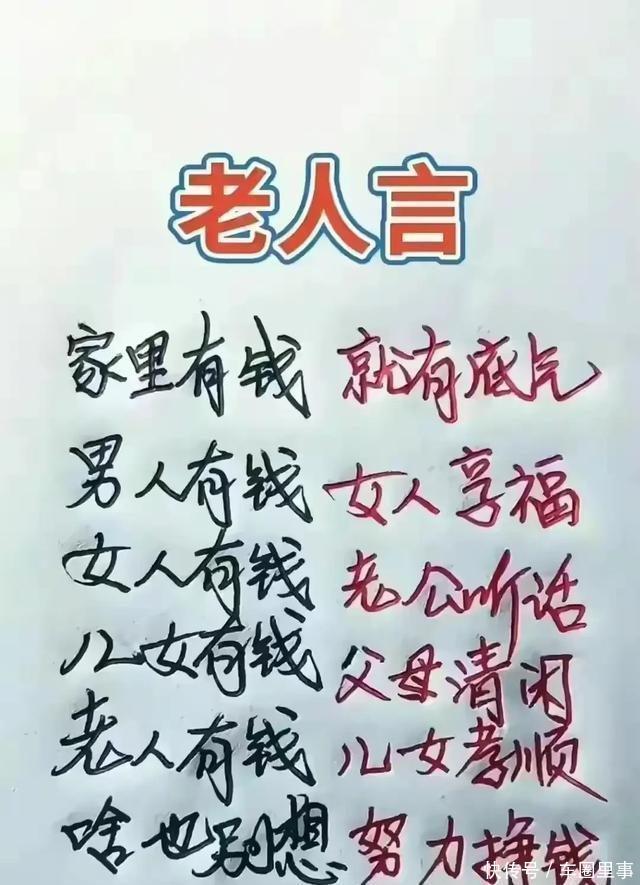 老人言
家里有钱 就有底气
男人有钱 女人享福
女人有钱 老公听话
儿女有钱 父母清闲
老人有钱 儿女孝顺
啥也别想 努力挣钱
快传号/车圈里事